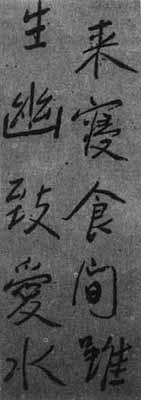 来寝食间雖
生幽致愛水